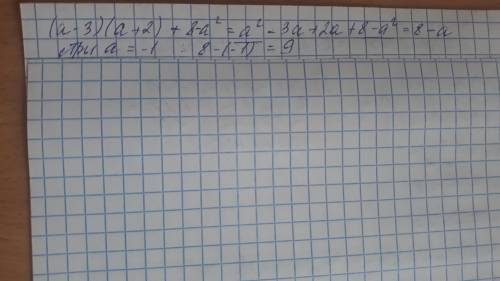 (a-3)(a+2) + 8-a² = a² - 3a+2a+8-a² = 8-a
при a = -1 8-(-1) = 9